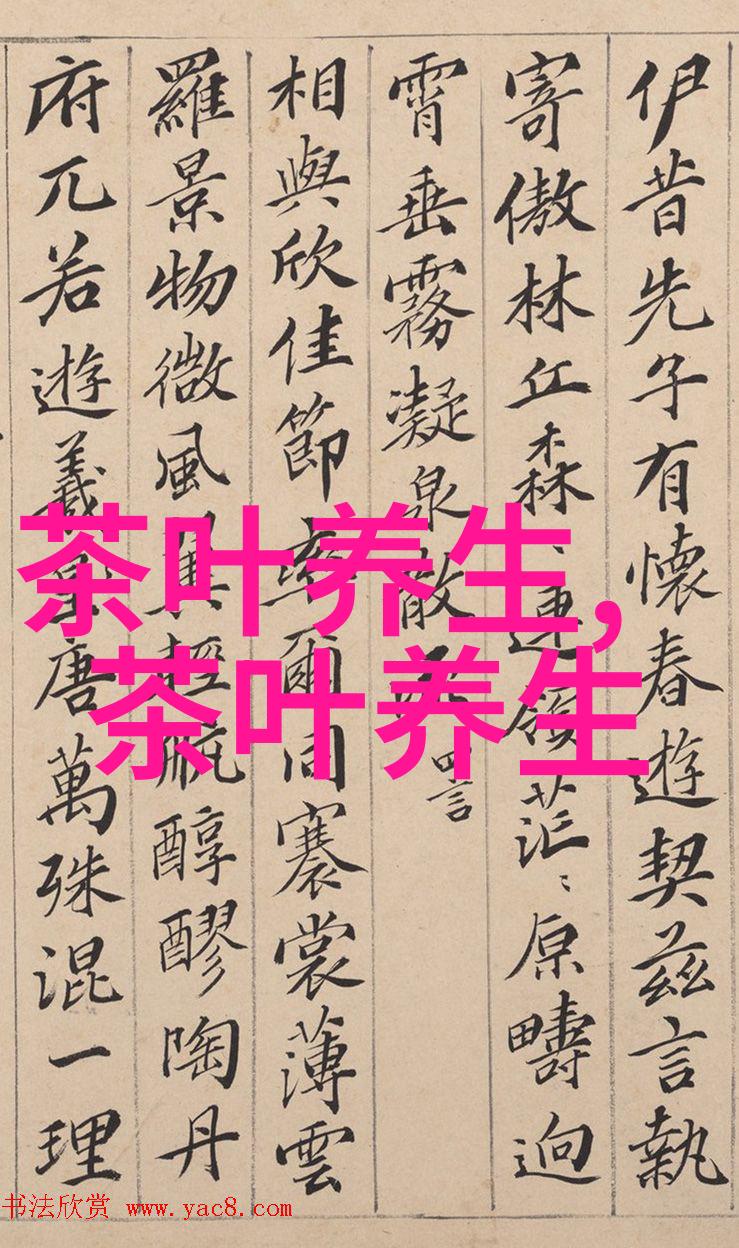 伊昔先子有懷春遊契茲言執
寄傲林丘森〻連領茫〻原疇迥
霄垂霧凝泉散流 四言
相與欣佳節率爾同褰裳薄雲
羅景物微風翼輕航醇醪陶丹
府兀若遊羲皇唐萬殊混一理
茶叶养生，
茶叶养生
书法欣赏 www.yac8.com